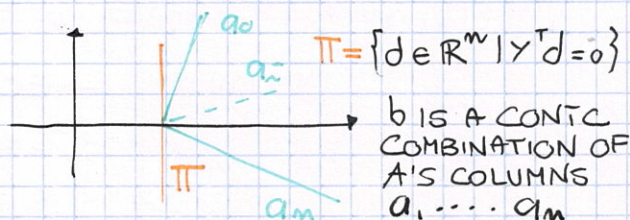 a₀
aₙ̃
Π = {d ∈ ℝⁿ | yᵀd = 0}
b IS A CONIC
COMBINATION OF
A'S COLUMNS
a₁ .... aₙ
Π
aₙ